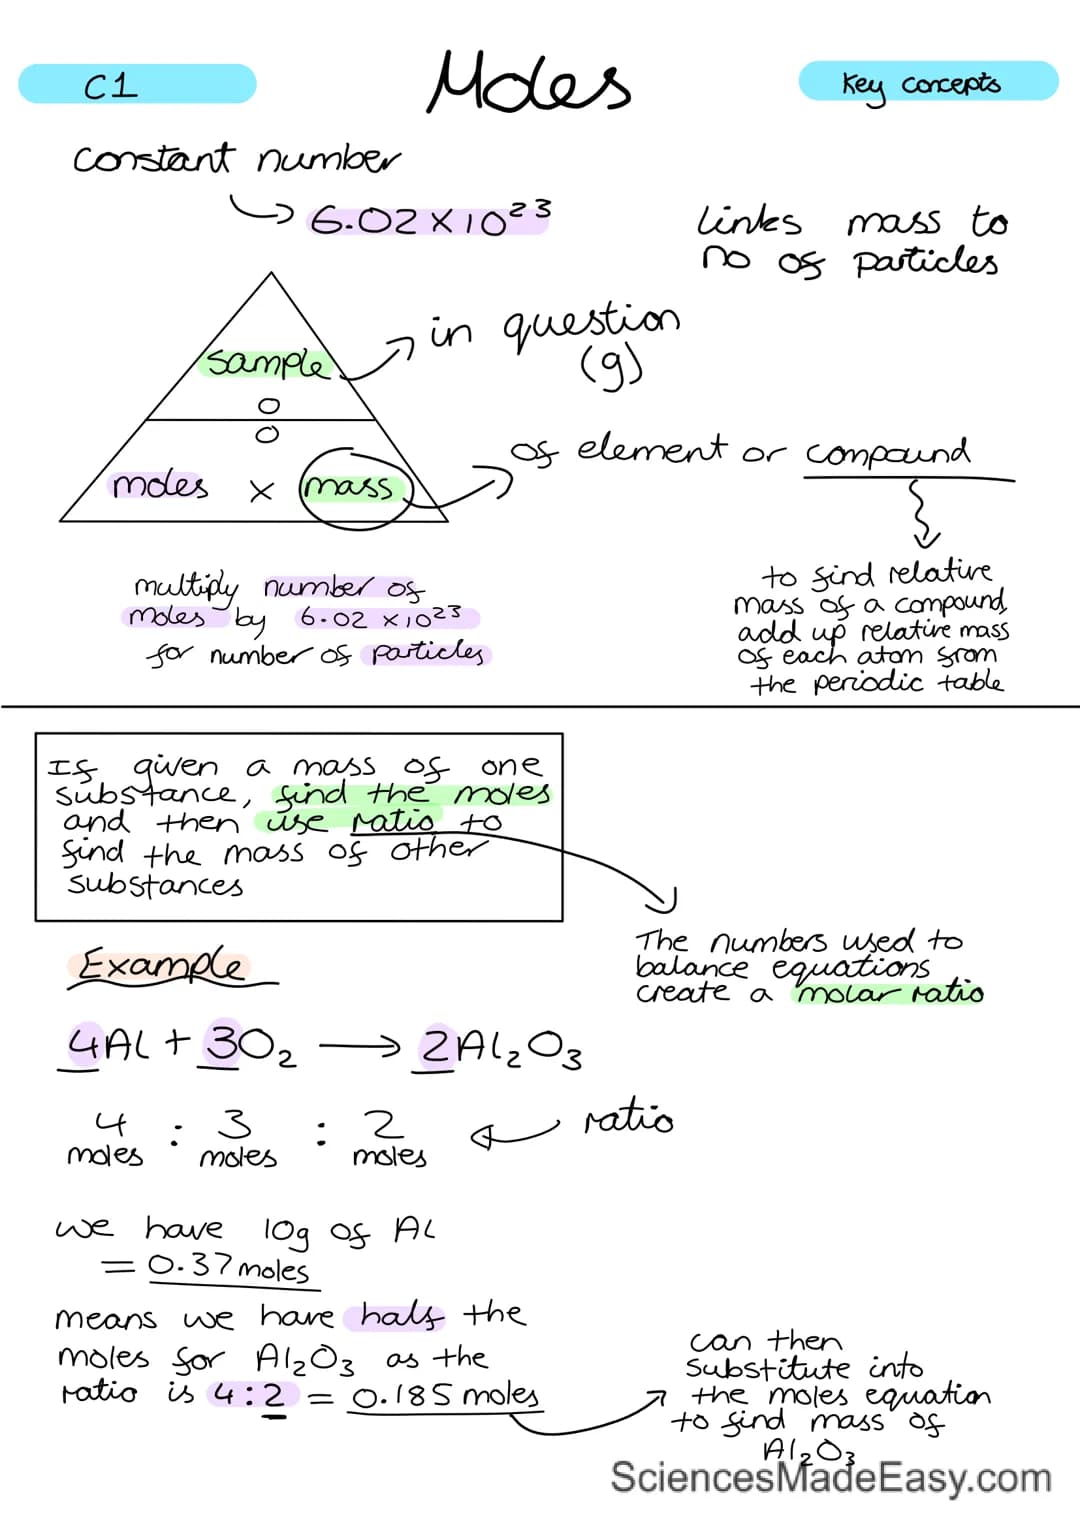 C1
Moles
Key concepts
constant number
6.02 x 10²³
links mass to
no of particles
in question
(g)
sample
moles x mass
of element or compound
multiply number of
moles by 6.02 x 10²³
for number of particles
to find relative
mass of a compound,
add up relative mass
of each atom from
the periodic table
If given a mass of one
substance, find the moles
and then use ratio to
find the mass of other
substances
The numbers used to
balance equations
create a molar ratio
Example
4Al + 3O₂ → 2Al₂O₃
4 : 3 : 2
moles moles moles
ratio
we have 10g of Al
= 0.37 moles
means we have half the
moles for Al₂O₃ as the
ratio is 4:2 = 0.185 moles
can then
substitute into
the moles equation
to find mass of
Al₂O₃
SciencesMadeEasy.com